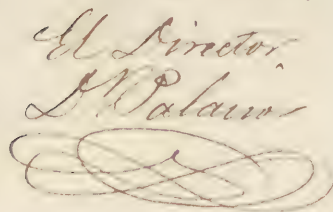 El Director
D. Palacio